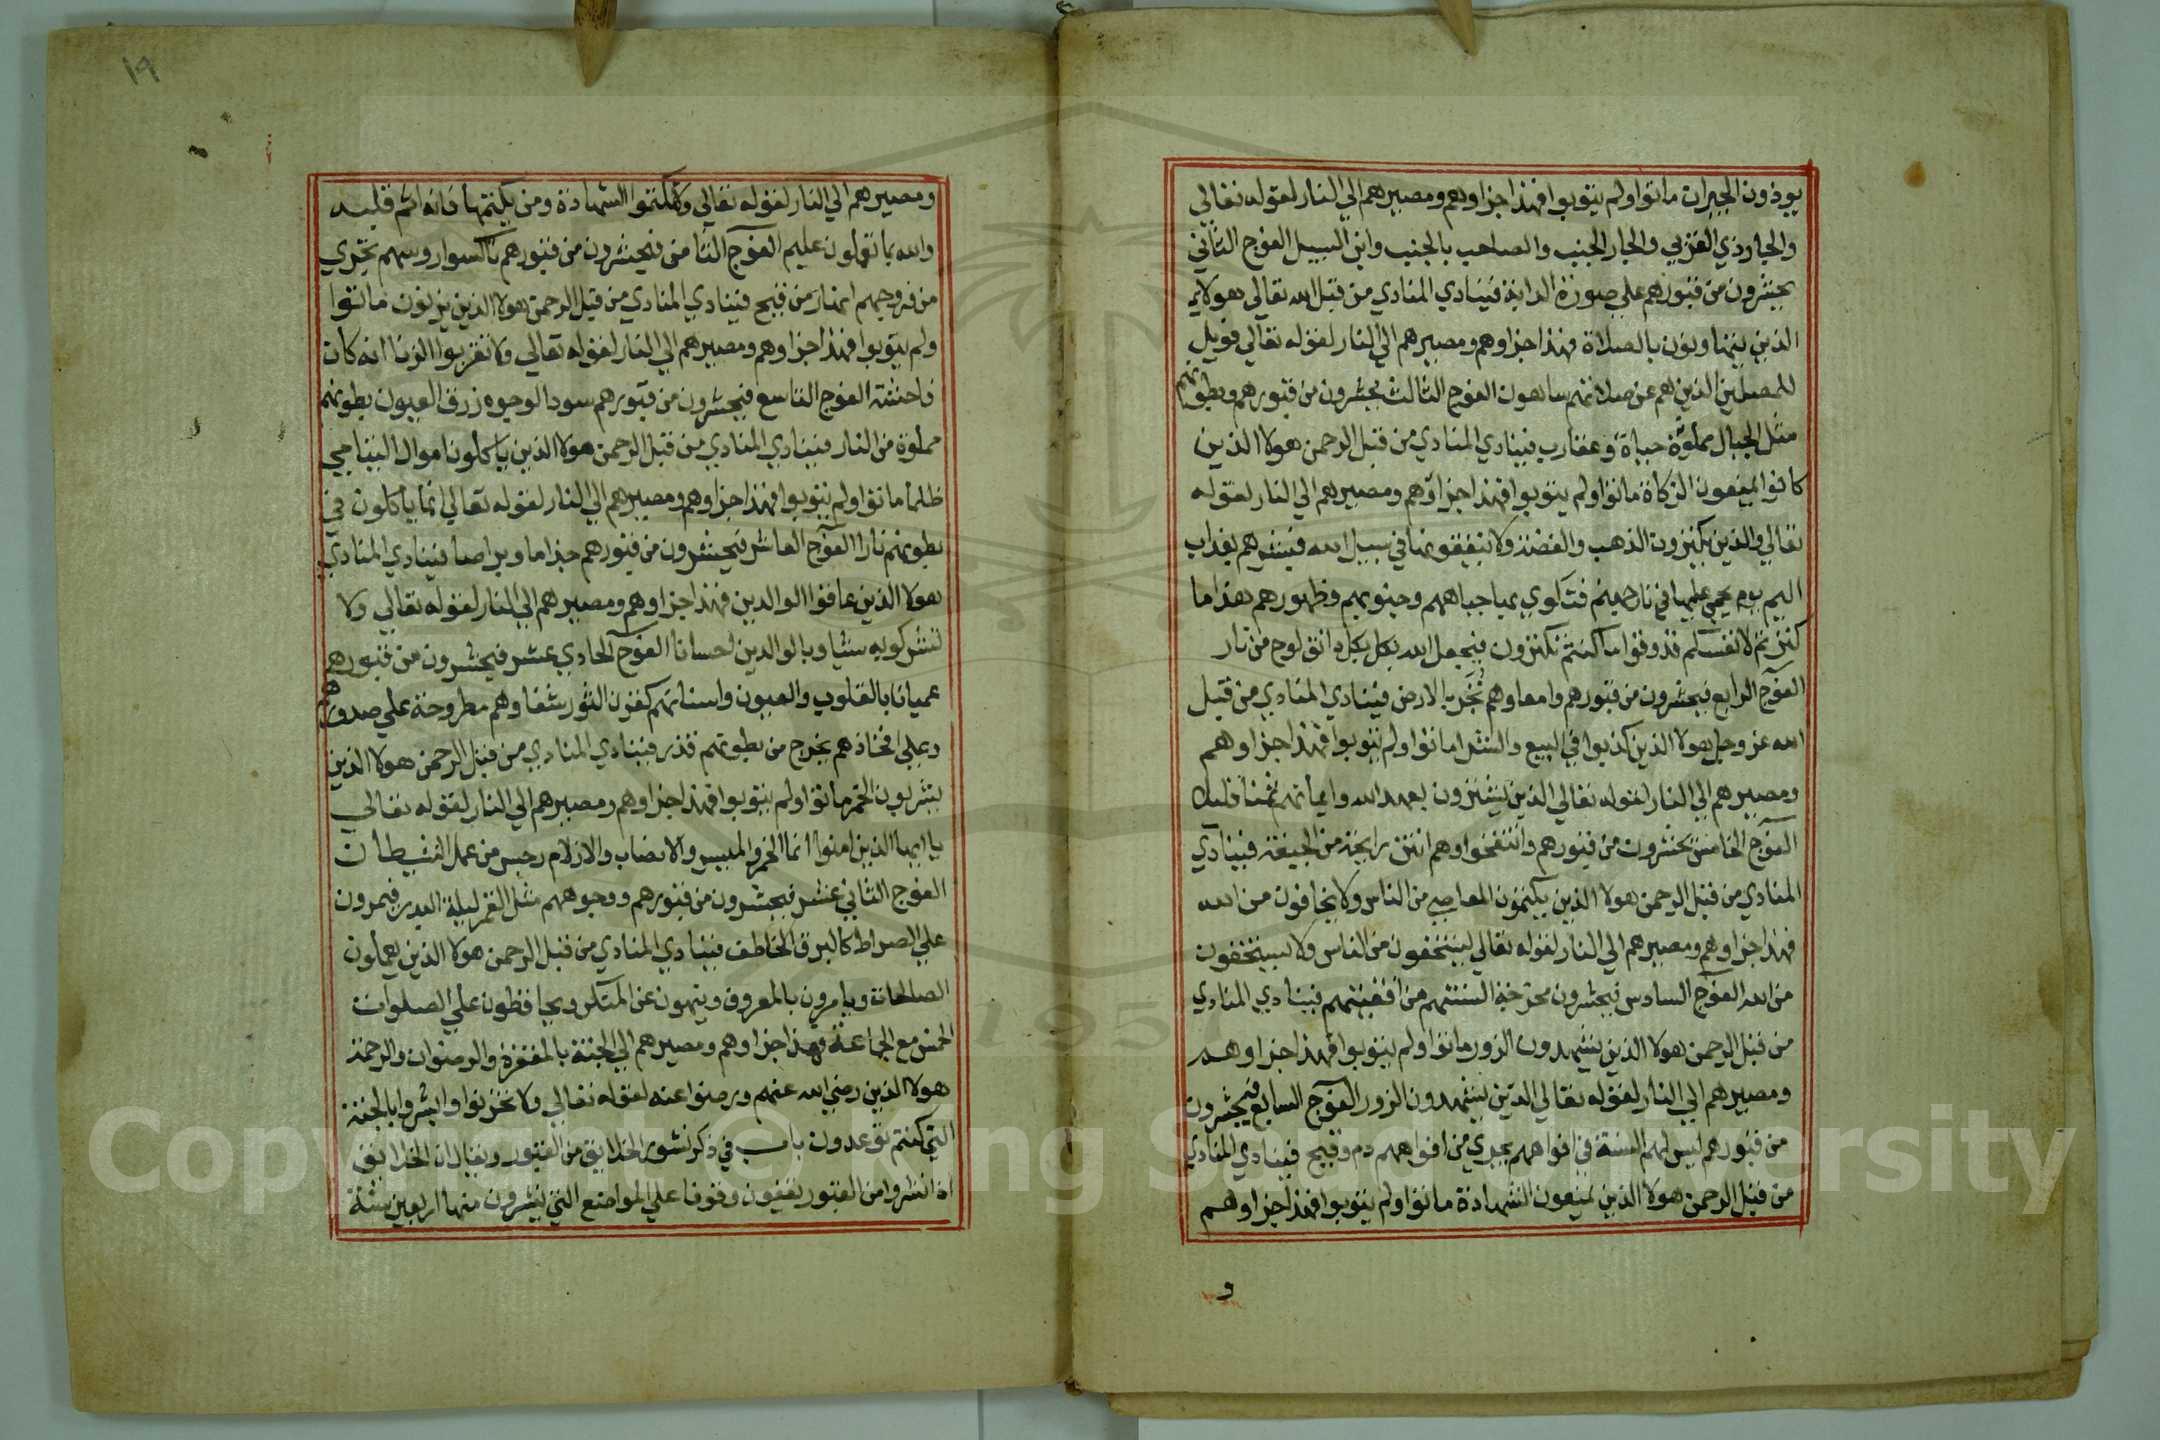 يوذون الجيران ماتوا ولم يتوبوا فهذا جزاوهم ومصيرهم الي النار لقوله تعالي
والجار ذي القربي والجار الجنب والصاحب بالجنب وابن السبيل الفوج الثاني
يحشرون من قبورهم علي صورة الدابة فينادي المنادي من قبل الله تعالي هولاء
الذين يتهاونون بالصلاة فهذا جزاوهم ومصيرهم الي النار لقوله تعالي فويل
للمصلين الذين هم عن صلاتهم ساهون الفوج الثالث يحشرون من قبورهم وبطونهم
مثل الجبال مملوة حياة وعقارب فينادي المنادي من قبل الرحمن هولا الذين
كانوا يمنعون الزكاة ماتوا ولم يتوبوا فهذا جزاوهم ومصيرهم الي النار لقوله
تعالي والذين يكنزون الذهب والفضة ولا ينفقونها في سبيل الله فبشرهم بعذاب
اليم يوم يحمي عليها في نار جهنم فتكوي بها جباههم وجنوبهم وظهورهم هذا ما
كنزتم لانفسكم فذوقوا ما كنتم تكنزون فيجعل الله بكل دانق لوح من نار
الفوج الرابع فيحشرون من قبورهم وامعاوهم تجر بالارض فينادي المنادي من قبل
الله عز وجل هولا الذين كذبوا في البيع والشرا ماتوا ولم يتوبوا فهذا جزاوهم
ومصيرهم الي النار لقوله تعالي الذين يشترون بعهد الله وايمانهم ثمنا قليلا
الفوج الخامس يحشرون من قبورهم وانتفخوا وهم انتن رايحة من الجيفة فينادي
المنادي من قبل الرحمن هولا الذين يكتمون المعاصي من الناس ولا يخافون من الله
فهذا جزاوهم ومصيرهم الي النار لقوله تعالي يستخفون من الناس ولا يستخفون
من الله الفوج السادس فيحشرون السنتهم من اقفيتهم فينادي المنادي
من قبل الرحمن هولا الذين يشهدون الزور ماتوا ولم يتوبوا فهذا جزاوهم
ومصيرهم الي النار لقوله تعالي الذين يشهدون الزور الفوج السابع فيحشرون
من قبورهم ليس لهم السنة في افواههم يجري من افواههم دم وقيح فينادي المنادي
من قبل الرحمن هولا الذين يمنعون الشهادة ماتوا ولم يتوبوا فهذا جزاوهم
و
١٩
ومصيرهم الي النار لقوله تعالي ولا تكتموا الشهادة ومن يكتمها فانه اثم قلبه
والله بما تعملون عليم الفوج الثامن فيحشرون من قبورهم ناكسوا روسهم تجري
من فروجهم انهار من قيح فينادي المنادي من قبل الرحمن هولا الذين يزنون ماتوا
ولم يتوبوا فهذا جزاوهم ومصيرهم الي النار لقوله تعالي ولا تقربوا الزنا انه كان
فاحشة الفوج التاسع فيحشرون من قبورهم سود الوجوه زرق العيون بطونهم
مملوة من النار فينادي المنادي من قبل الرحمن هولا الذين ياكلون اموال اليتامي
ظلما ماتوا ولم يتوبوا فهذا جزاوهم ومصيرهم الي النار لقوله تعالي انما ياكلون في
بطونهم نارا الفوج العاشر فيحشرون من قبورهم جذاما وبراصا فينادي المنادي
هولا الذين عاقوا الوالدين فهذا جزاوهم ومصيرهم الي النار لقوله تعالي ولا
تشركو به شئيا وبالوالدين احسانا الفوج الحادي عشر فيحشرون من قبورهم
عميانا بالقلوب والعيون واسنانهم كقرن الثور شفاوهم مطروحة علي صدورهم
وعلي افخاذهم يخرج من بطونهم قذر فينادي المنادي من قبل الرحمن هولا الذين
يشربون الخمر ماتوا ولم يتوبوا فهذا جزاوهم ومصيرهم الي النار لقوله تعالي
يا ايها الذين امنوا انما الخمر والميسر والانصاب والازلام رجس من عمل الشيطان
الفوج الثاني عشر فيحشرون من قبورهم ووجوههم مثل القمر ليلة البدر فيمرون
علي الصراط كالبرق الخاطف فينادي المنادي من قبل الرحمن هولا الذين يعملون
الصالحات ويامرون بالمعروف وينهون عن المنكر ويحافظون علي الصلوات
الخمس مع الجماعة فهذا جزاوهم ومصيرهم الي الجنة بالمغفرة والرضوان والرحمة
هولا الذين رضي الله عنهم ورضوا عنه لقوله تعالي ولا تحزنوا وابشروا بالجنة
التي كنتم توعدون باب في ذكر نشور الخلايق من القبور ويقال ان الخلايق
اذا نشروا من القبور يقفون وقوفا علي المواضع التي ينشرون منها اربعين سنة
Copyright © King Saud University
1957